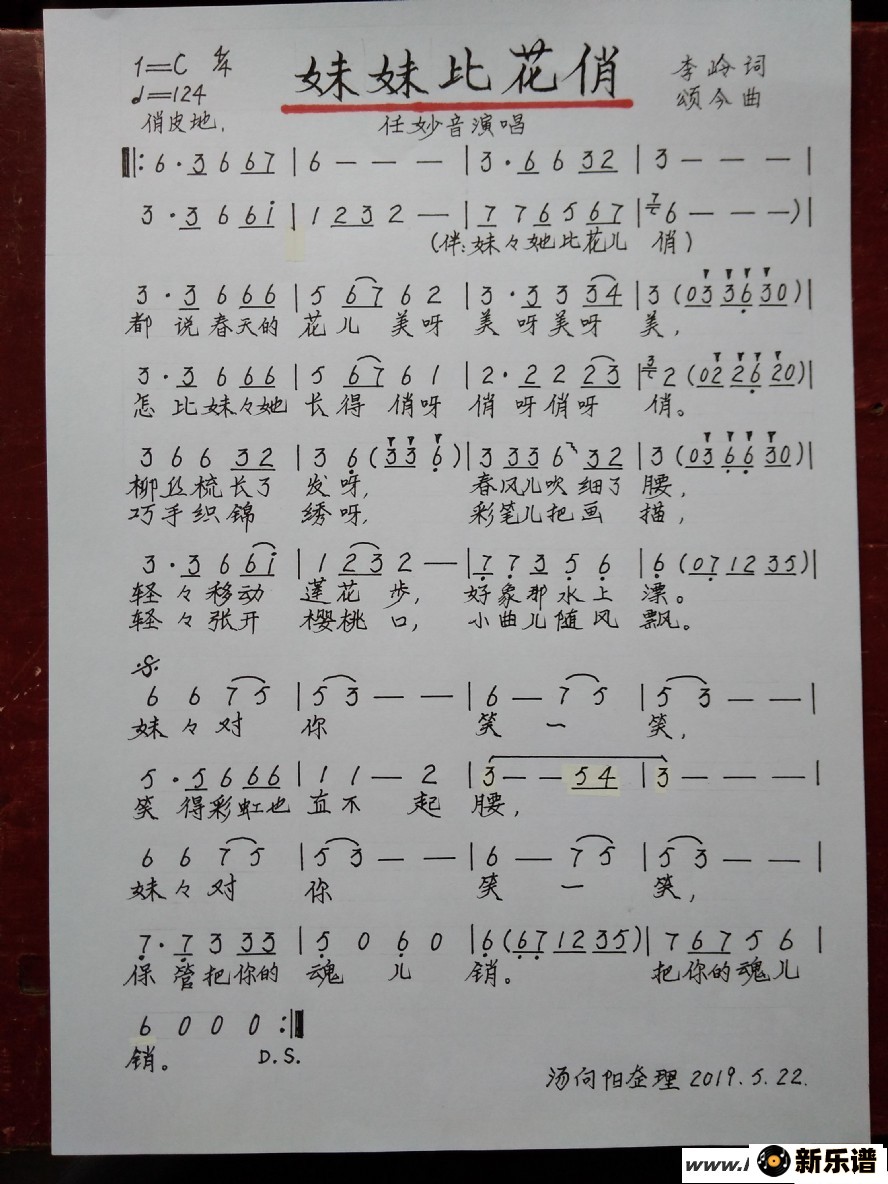 1=C 4/4
妹妹比花俏
李岭词
♩=124
颂今曲
俏皮地.
任妙音演唱
‖: 6 · 3 6 6 7 | 6 — — — | 3 · 6 6 3 2 | 3 — — — |
3 · 3 6 6 i | 1 2 3 2 — | 7 7 6 5 6 7 | 6 — — — ) |
(伴:妹々她比花儿 俏)
3 · 3 6 6 6 | 5 6 7 6 2 | 3 · 3 3 3 4 | 3 ( 0 3 3 6 3 0 ) |
都 说春天的 花儿 美呀 美 呀美呀 美,
3 · 3 6 6 6 | 5 6 7 6 1 | 2 · 2 2 2 3 | 2 ( 0 2 2 6 2 0 ) |
怎 比妹々她 长得 俏呀 俏 呀俏呀 俏。
3 6 6 3 2 | 3 6 ( 3 3 6 ) | 3 3 3 6 3 2 | 3 ( 0 3 6 6 3 0 ) |
柳丝梳长了 发呀, 春风儿吹细了 腰,
巧手织锦 绣呀, 彩笔儿把画 描,
3 · 3 6 6 i | 1 2 3 2 — | 7 7 3 5 6 | 6 ( 0 7 1 2 3 5 ) |
轻々移动 莲花 步, 好象那水上 漂。
轻々张开 樱桃 口, 小曲儿随风 飘。
6 6 7 5 | 5 3 — — | 6 — 7 5 | 5 3 — — |
妹々对 你 笑 一 笑,
5 · 5 6 6 6 | 1 1 — 2 | 3 — — 5 4 | 3 — — — |
笑 得彩虹也 直不 起 腰,
6 6 7 5 | 5 3 — — | 6 — 7 5 | 5 3 — — |
妹々对 你 笑 一 笑,
7 · 7 3 3 3 | 5 0 6 0 | 6 ( 6 7 1 2 3 5 ) | 7 6 7 5 6 |
保 管把你的 魂 儿 销。 把你的魂儿
6 0 0 0 :‖
销。 D.S.
汤向阳奎理 2019.5.22.
www.
新乐谱